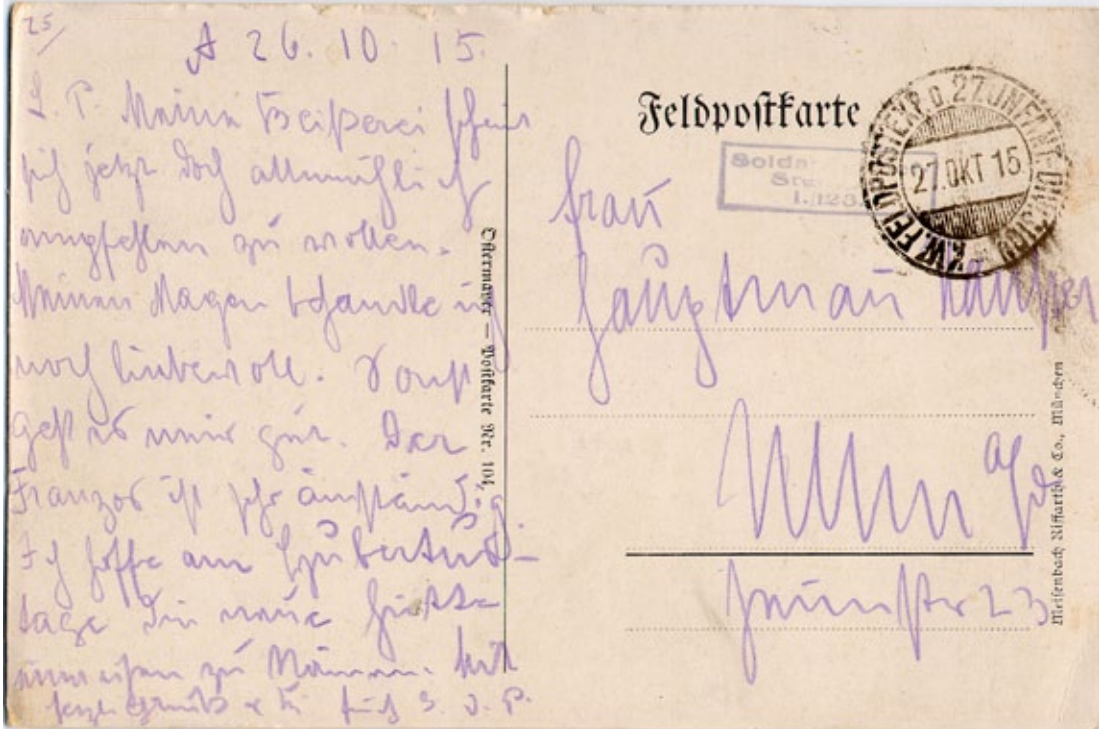 25/
A 26.10.15.
L. P. Meine Beißerei scheint
sich jetzt doch allmählich
empfehlen zu wollen.
Meinen Magen behandle ich
noch liebevoll. Sonst
geht es mir gut. Der
Franzos ist sehr anständig.
Ich hoffe am Hubertus-
tage die neue Hütte
einweihen zu können. Mit
herzl. Gruß & K. für S. D. P.
Ostermayer – Postkarte Nr. 104.
Feldpostkarte
K.W. FELDPOSTEXP. D. 27. INFANT. DIVISION
27. OKT 15
Frau
Hauptmann
Ulm a/D
23
Meisenbach Riffarth & Co., München